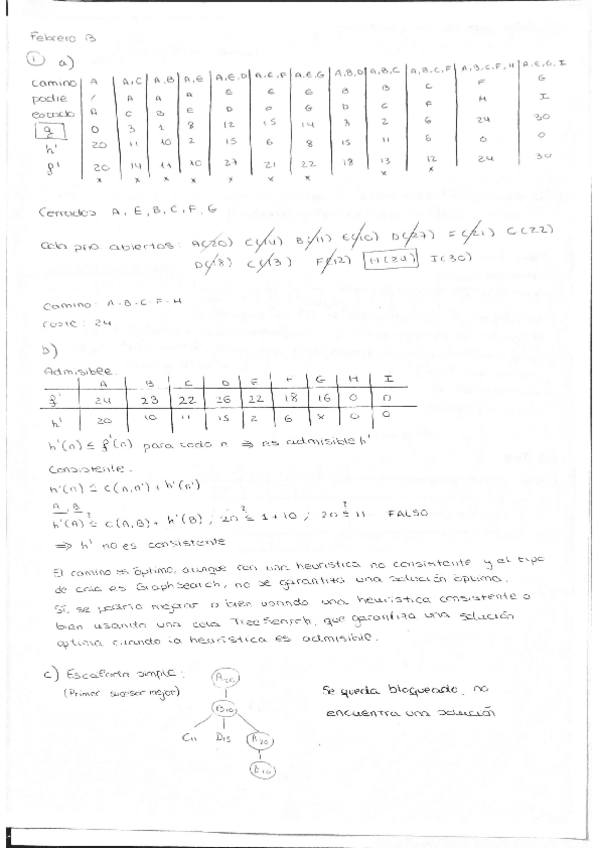 Febrero 13
① a)
camino A A,C A,B A,E A,E,D A,E,F A,E,G A,B,D A,B,C A,B,C,F A,B,C,F,H A,E,G,I
padre / A A A E E E B B C F G
estado A C B E D F G D C F H I
g 0 3 1 8 12 15 14 3 2 6 24 30
h' 20 11 10 2 15 6 8 15 11 6 0 0
f' 20 14 11 10 27 21 22 18 13 12 24 30
x x x x x x x x x
Cerrados A, E, B, C, F, G
Cola prio abiertos: A(20) C(14) B(11) E(10) D(27) F(21) G(22)
D(18) C(13) F(12) H(24) I(30)
Camino: A-B-C-F-H
coste: 24
b)
Admisible.
A B C D E F G H I
f' 24 23 22 26 22 18 16 0 0
h' 20 10 11 15 2 6 x 0 0
h'(n) ≤ f'(n) para todo n ⇒ es admisible h'
Consistente.
h'(n) ≤ c(n,n') + h'(n')
A, B
h'(A) ≤? c(A,B) + h'(B) ; 20 ≤? 1+10 ; 20 ≤? 11 FALSO
⇒ h' no es consistente
El camino es óptimo, aunque con una heurística no consistente y el tipo
de cola es GraphSearch, no se garantiza una solución óptima.
Sí, se podría mejorar o bien usando una heurística consistente o
bien usando una cola TreeSearch, que garantiza una solución
óptima cuando la heurística es admisible.
c) Escalada simple:
(Primer sucesor mejor)
A20
B10
C11 D15 A20
E10
Se queda bloqueado, no
encuentra una solución